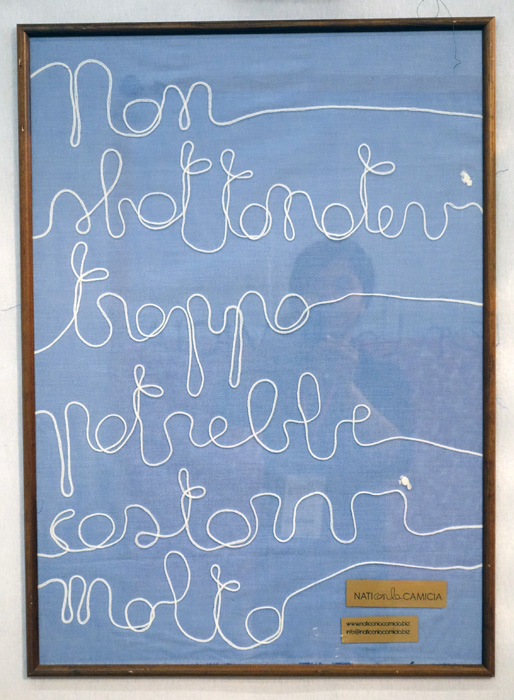 Non
sbottonatevi
troppo
potrebbe
costarvi
molto
NATI con la CAMICIA
www.naticonlacamicia.biz
info@naticonlacamicia.biz